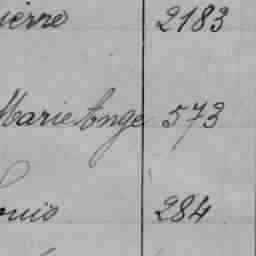 ierre 2183
Marie Ange 573
ouis 284